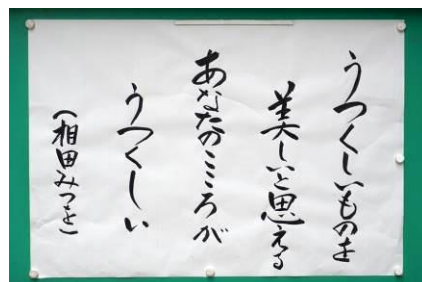 うつくしいものを
美しいと思える
あなたのこころが
うつくしい
(相田みつを)